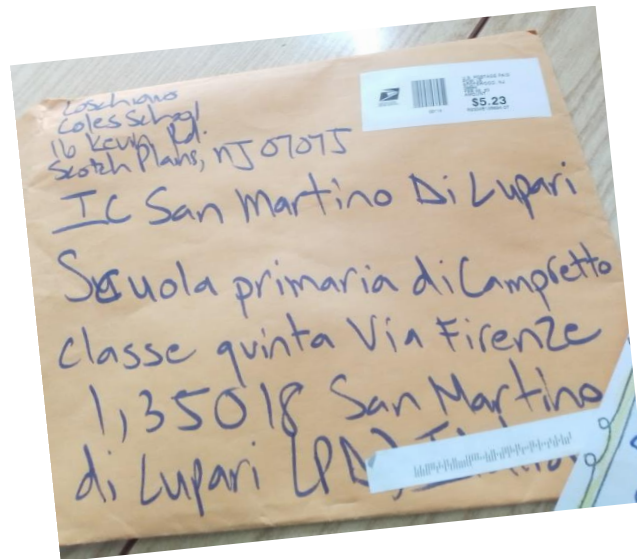 Loschiavo
Coles School
16 Kevin Rd.
Scotch Plains, NJ 07075
$5.23
IC San Martino Di Lupari
Scuola primaria di Campretto
classe quinta Via Firenze
1, 35018 San Martino
di Lupari (PD),